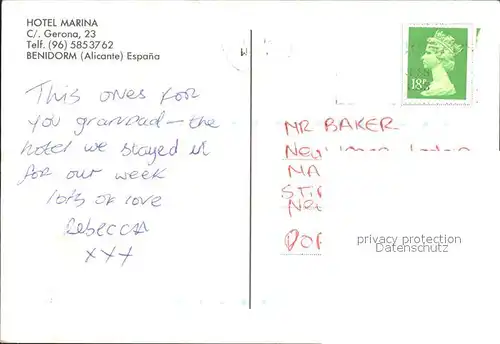 HOTEL MARINA
C/. Gerona, 23
Telf. (96) 5853762
BENIDORM (Alicante) España
This ones for
you grandad – the
hotel we stayed in
for our week
lots of love
Rebecca
xxx
18P
MR BAKER
privacy protection
Datenschutz